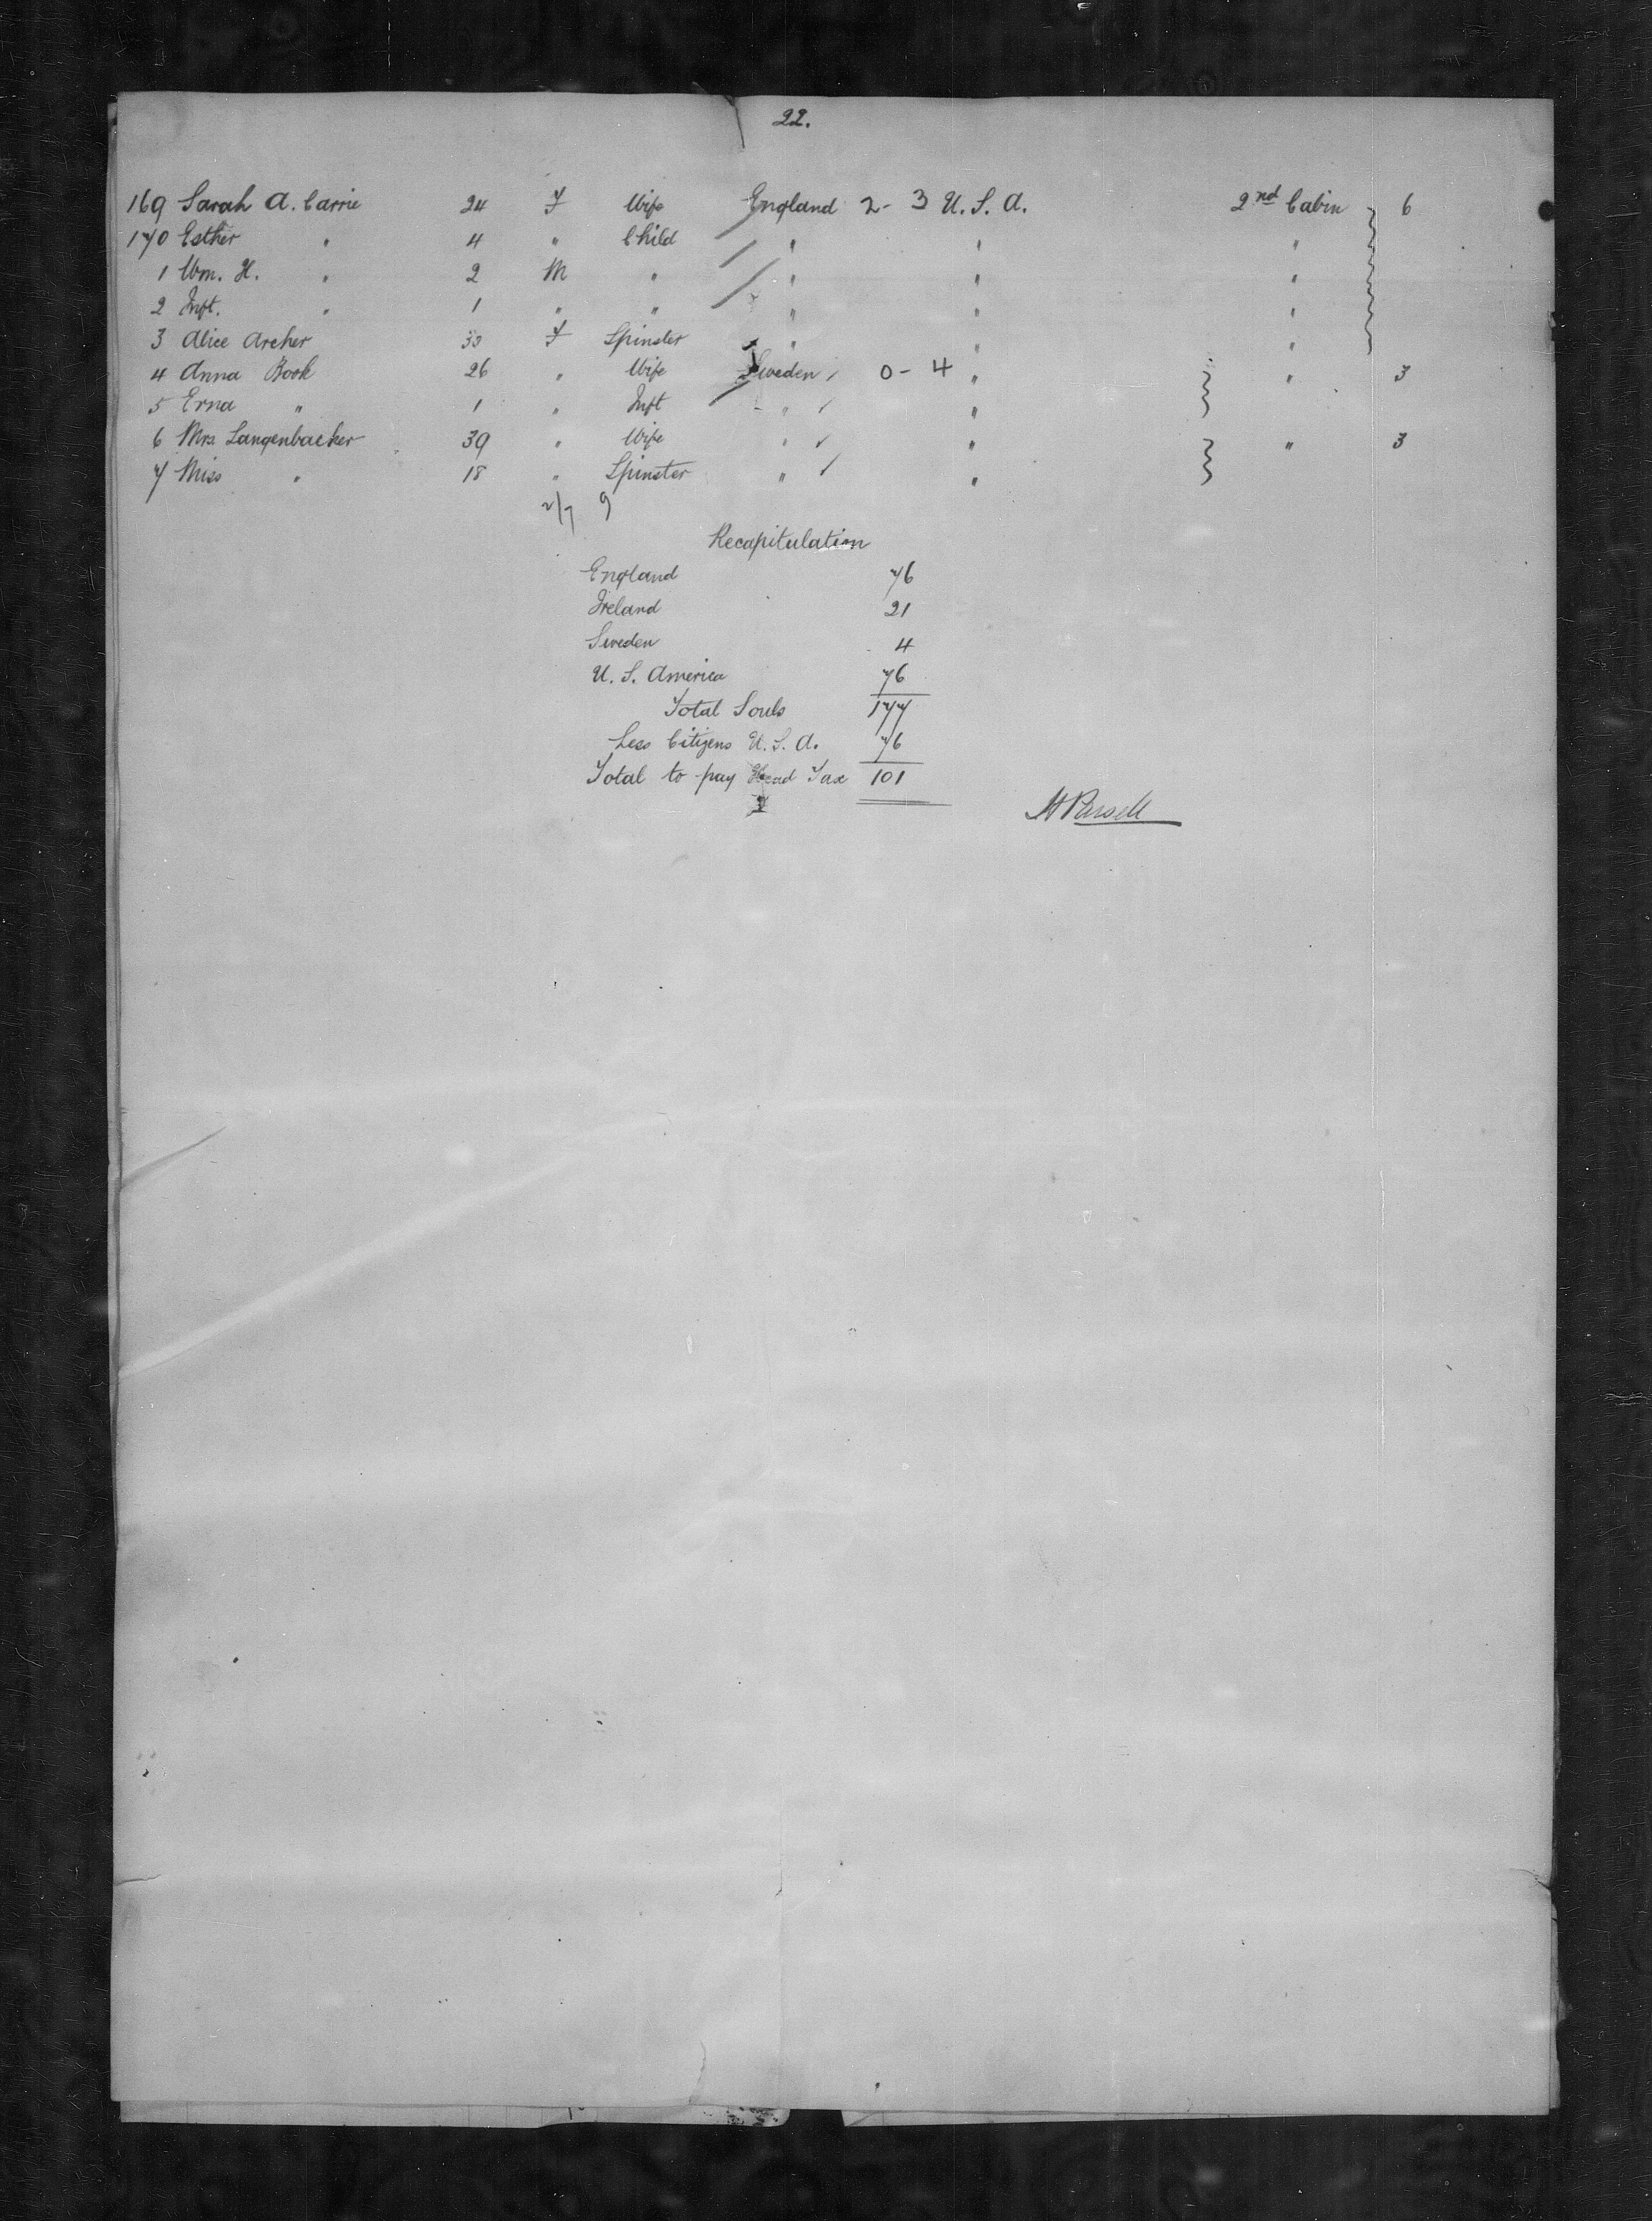 22.
169 Sarah A. Carrie 24 F Wife England 2 - 3 U. S. A. 2nd Cabin 6
170 Esther " 4 " Child " " "
1 Wm. H. " 2 M " " " "
2 Inft. " 1 " " " " "
3 Alice Archer 33 F Spinster " " "
4 Anna Book 26 " Wife Sweden 0 - 4 " " 3
5 Erna " 1 " Inft " "
6 Mrs Langenbacker 39 " Wife " " " 3
7 Miss " 18 " Spinster " "
2/7 9
Recapitulation
England 76
Ireland 21
Sweden 4
U. S. America 76
Total Souls 177
Less Citizens U. S. A. 76
Total to pay Head Tax 101